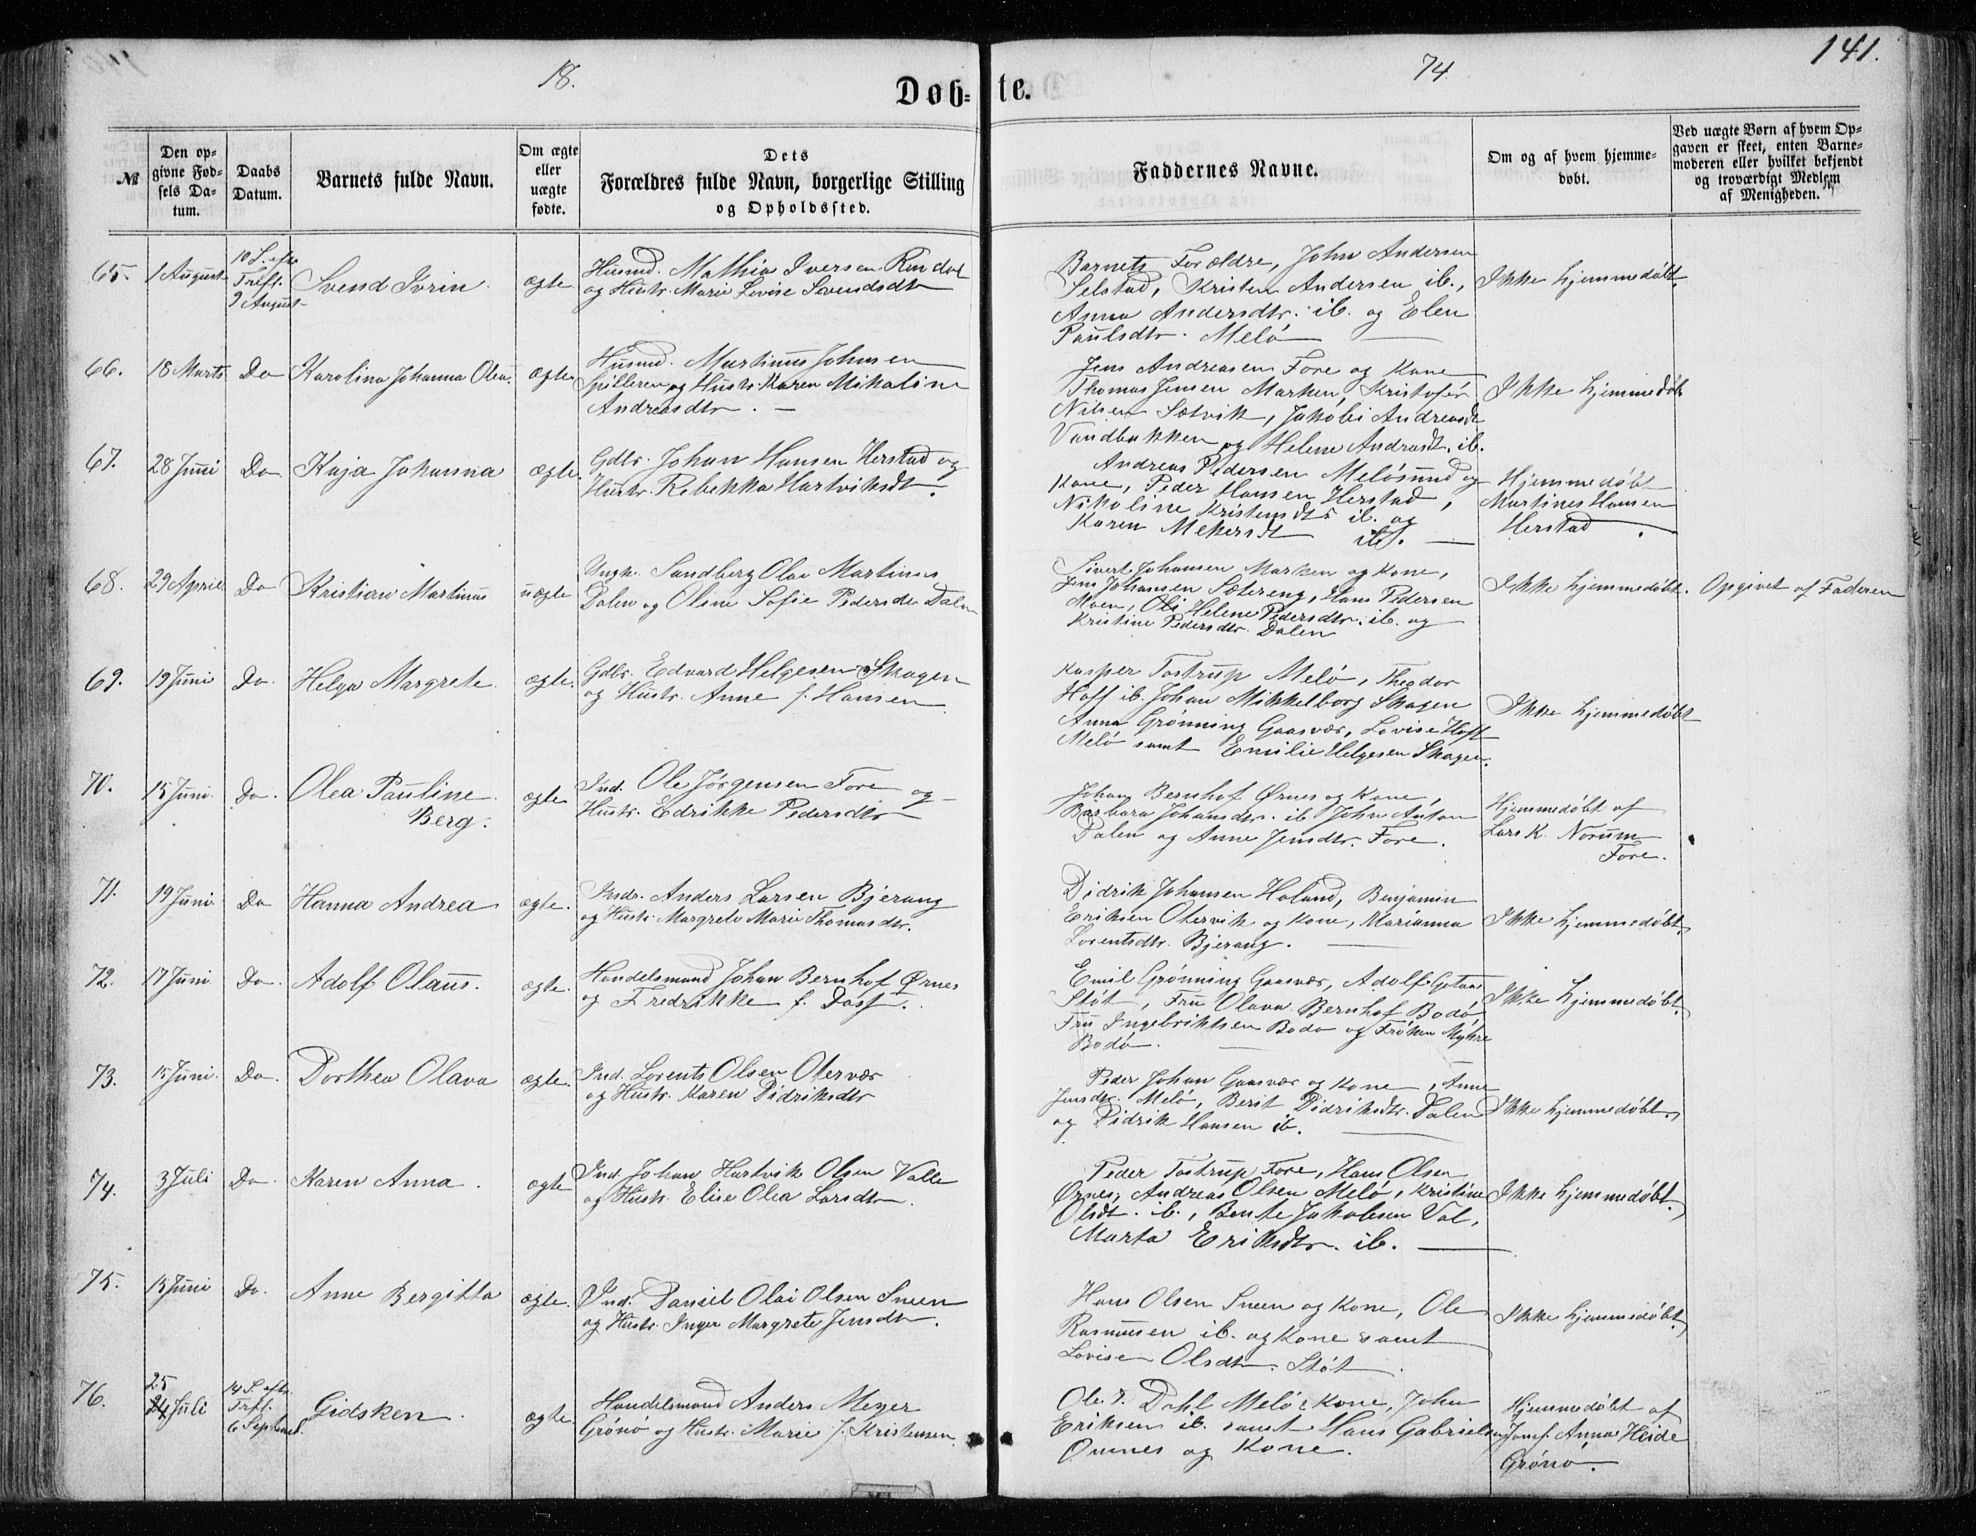 18.
74
141.
Døb-
te.
№
Den op-
givne Fød-
sels Da-
tum.
Daabs
Datum.
Barnets fulde Navn.
Om ægte
eller
uægte
fødte.
Dets
Forældres fulde Navn, borgerlige Stilling
og Opholdssted.
Faddernes Navne.
Om og af hvem hjemme-
døbt.
Ved uægte Børn af hvem Op-
gaven er skeet, enten Barne-
moderen eller hvilket bekjendt
og troværdigt Medlem
af Menigheden.
65.
1 August
10 S. efter
Trefl.
9 August
Svend Ivrin
ægte
Husmd. Mathias Iversen Rendal
og Hustr. Marie Lovise Svendsdtr
Barnets Forældre, John Andersen
Selstad, Kristen Andersen ib.,
Anna Andersdtr. ib. og Elen
Paulsdtr. Melø
Ikke hjemmedøbt.
66.
18 Marts
Do
Karolina Johanna Olea.
ægte
Husmd. Martinus Johnsen
Spilleren og Hustr. Karen Mikaline
Andreasdtr.
Jens Andreasen Fore og Kone
Thomas Jensen Marken, Kristofer
Nilsen Sætvik, Jakobi Andreasdt
Vandbakken og Helene Andreasdt. ib.
Ikke hjemmedøbt
67.
28 Juni
Do
Kaja Johanna
ægte
Gdbr. Johan Hansen Herstad og
Hustr. Rebekka Hartviksdt.
Andreas Pedersen Meløsund og
Kone, Peder Hansen Herstad,
Nikoline Kristensdtr ib. og
Karen Mekersdt ib.
Hjemmedøbt
Martines Hansen
Herstad.
68.
29 April
Do
Kristian Martinus
uægte
Ungk. Sandberg Olai Martinus
Dalen og Oline Sofie Pedersdtr Dalen
Sivert Johansen Marken og Kone,
Jens Johansen Sætereng, Hans Pedersen
Moen, Oli Helene Pedersdtr. ib. og
Kristine Pedersdtr. Dalen
Ikke hjemmedøbt.
Opgivet af Faderen
69.
19 Juni
Do.
Helga Margrete
ægte.
Gdbr. Edvard Helgesen Skagen
og Hustr. Anne f. Hansen
Kasper Tostrup Melø, Theodor
Hoff ib. Johan Mikkelborg Skagen
Anna Grønning Gaasvær, Lovise Hoff
Melø samt Emilie Helgesen Skagen.
Ikke hjemmedøbt
70.
15 Juni
Do.
Olea Pauline
Berg.
ægte
Ind. Ole Jørgensen Fore og
Hustr. Edrikke Pedersdtr
Johan Bernhof Ørnes og Kone,
Barbara Johansdtr. ib John Anton
Dalen og Anne Jensdtr. Fore.
Hjemmedøbt af
Lars K. Norum
Fore.
71.
19 Juni
Do
Hanna Andrea
ægte.
Indr. Anders Larsen Bjerang
og Hustr. Margrete Marie Thomasdtr.
Didrik Johansen Holand, Benjamin
Eriksen Otervik og Kone, Marianna
Lorentsdtr. Bjerang.
Ikke hjemmedøbt.
72.
17 Juni
Do.
Adolf Olaus.
ægte.
Handelsmand Johan Bernhof Ørnes
og Fredrikke f. Dass.
Emil Grønning Gaasvær, Adolf Gotaas
Støt, Fru Olava Bernhof Bodø,
Fru Ingebriktsen Bodø og Frøken Myhre
Bodø.
Ikke hjemmedøbt.
73.
15 Juni.
Do.
Dorthea Olava
ægte.
Ind. Lorents Olsen Otervær
og Hustr. Karen Didriksdtr
Peder Johan Gaasvær og Kone, Anne
Jensdtr. Melø, Berit Didriksdtr. Dalen
og Didrik Hansen ib.
Ikke hjemmedøbt.
74.
3 Juli
Do
Karen Anna.
ægte
Ind. Johan Hartvik Olsen Valle
og Hustr. Elise Olea Larsdtr.
Peder Tostrup Fore, Hans Olsen
Ørnes, Andreas Olsen Melø, Kristine
Olsdt. ib., Bente Jakobsen Val,
Marta Eriksdtr. ib.
Ikke hjemmedøbt.
75.
15 Juni
Do.
Anne Bergitta
ægte.
Ind. Daniel Olai Olsen Sneen
og Hustr. Inger Margrete Jensdtr.
Hans Olsen Sneen og Kone, Ole
Rasmussen ib. og Kone samt
Lovise Olsdtr. Støt.
Ikke hjemmedøbt.
76.
25
24 Juli
14 S. eftr.
Trfl.
6 Septembr
Gidsken.
ægte
Handelsmand Anders Meyer
Grønø og Hustr. Marie f. Kristensen.
Ole P. Dahl Melø & Kone, John
Eriksen ib. samt Hans Gabrielsen
Ørnes og Kone.
Hjemmedøbt af
Jomf. Anna Heide
Grønø.